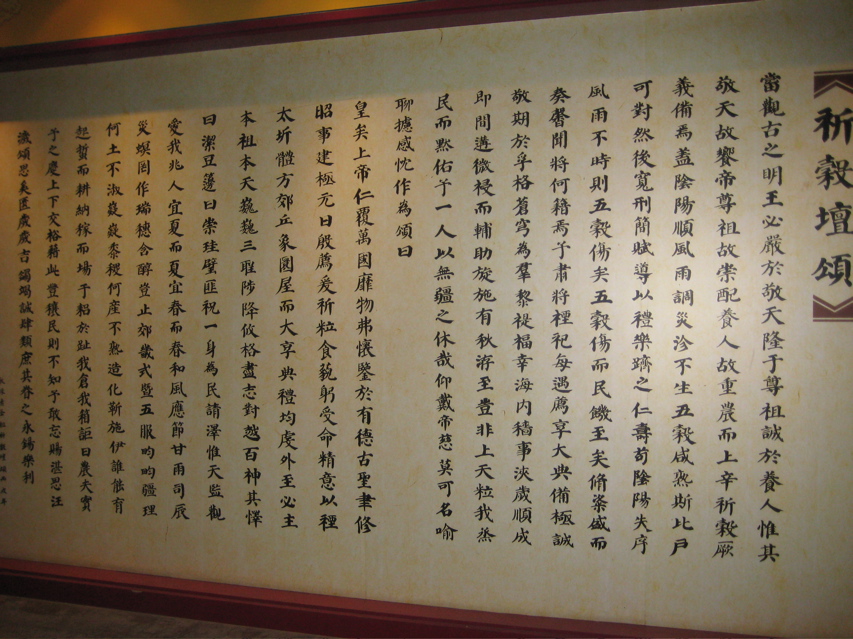 祈穀壇頌
嘗觀古之明王必嚴於敬天隆于尊祖誠於養人惟其
敬天故饗帝尊祖故崇配養人故重農而上辛祈穀厥
義備焉蓋陰陽順風雨調災沴不生五穀咸熟斯比戶
可封然後寬刑簡賦導以禮樂躋之仁壽苟陰陽失序
風雨不時則五穀傷矣五穀傷而民饑至矣脩粢盛而
奏馨聞將何籍焉予肅將禋祀每遇薦享大典備極誠
敬期於孚格蒼穹為羣黎禔福幸海內穡事浹歲順成
即間遘微祲而輔助旋施有秋洊至豊非上天粒我烝
民而黙佑予一人以無疆之休哉仰戴帝慈莫可名喻
聊攄感忱作為頌曰
皇矣上帝仁覆萬國靡物弗懷鑒於有德古聖聿修
昭事建極元日殷薦爰祈粒食藐躬受命精意以禋
太圻體方郊丘象圓屋而大享典禮均虔外至必主
本祖本天巍巍三聖陟降攸格盡志對越百神其懌
曰潔豆籩曰崇珪璧匪祝一身為民請澤惟天監觀
愛我兆人宜夏而夏宜春而春和風應節甘雨司辰
災螟罔作瑞穗含醇豈止郊畿式暨五服畇畇疆理
何土不淑嶷嶷黍稷何產不熟造化靳施伊誰能育
起蜇而耕納稼而場于耜於趾我倉我箱詎曰農夫實
予之慶上下交裕藉此豐穰民則不知予敢忘賜湛恩汪
濊頌思奚匱歲歲吉蠲竭誠肆類庶其眷之永錫樂利